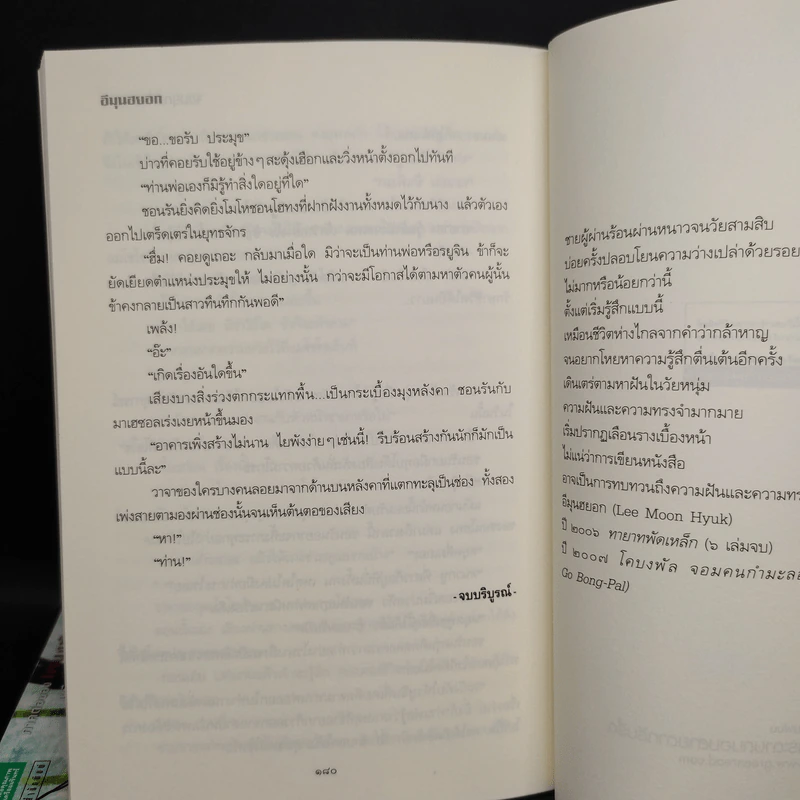 อีมุนฮยอก
“ขอ...ขอรับ ประมุข”
บ่าวที่คอยรับใช้อยู่ข้างๆ สะดุ้งเฮือกและวิ่งหน้าตั้งออกไปทันที
“ท่านพ่อเองก็มิรู้ทำสิ่งใดอยู่ที่ใด”
ซอนรันยิ่งคิดยิ่งโมโหซอนโฮทงที่ฝากฝังงานทั้งหมดไว้กับนาง แล้วตัวเอง
ออกไปเตร็ดเตร่ในยุทธจักร
“ฮึ่ม! คอยดูเถอะ กลับมาเมื่อใด มิว่าจะเป็นท่านพ่อหรือรยูจิน ข้าก็จะ
ยัดเยียดตำแหน่งประมุขให้ ไม่อย่างนั้น กว่าจะมีโอกาสได้ตามหาตัวคนผู้นั้น
ข้าคงกลายเป็นสาวทึนทึกกันพอดี”
เพล้ง!
“อ๊ะ”
“เกิดเรื่องอันใดขึ้น”
เสียงบางสิ่งร่วงตกกระแทกพื้น...เป็นกระเบื้องมุงหลังคา ซอนรันกับ
มาเฮซอลเร่งเงยหน้าขึ้นมอง
“อาคารเพิ่งสร้างไม่นาน ไยพังง่ายๆ เช่นนี้! รีบร้อนสร้างกันนักก็มักเป็น
แบบนี้ละ”
วาจาของใครบางคนลอยมาจากด้านบนหลังคาที่แตกทะลุเป็นช่อง ทั้งสอง
เพ่งสายตามองผ่านช่องนั้นจนเห็นต้นตอของเสียง
“หา!”
“ท่าน!”
- จบบริบูรณ์ -
๑๘๐
ชายผู้ผ่านร้อนผ่านหนาวจนวัยสามสิบ
บ่อยครั้งปลอบโยนความว่างเปล่าด้วยรอย
ไม่มากหรือน้อยกว่านี้
ตั้งแต่เริ่มรู้สึกแบบนี้
เหมือนชีวิตห่างไกลจากคำว่ากล้าหาญ
จนอยากโหยหาความรู้สึกตื่นเต้นอีกครั้ง
เดินเตร่ตามหาฝันในวัยหนุ่ม
ความฝันและความทรงจำมากมาย
เริ่มปรากฏเลือนรางเบื้องหน้า
ไม่แน่ว่าการเขียนหนังสือ
อาจเป็นการทบทวนถึงความฝันและความทร
อีมุนฮยอก (Lee Moon Hyuk)
ปี ๒๐๐๖ ทายาทพัดเหล็ก (๖ เล่มจบ)
ปี ๒๐๐๗ โคบงพัล จอมคนกำมะลอ
Go Bong-Pal)